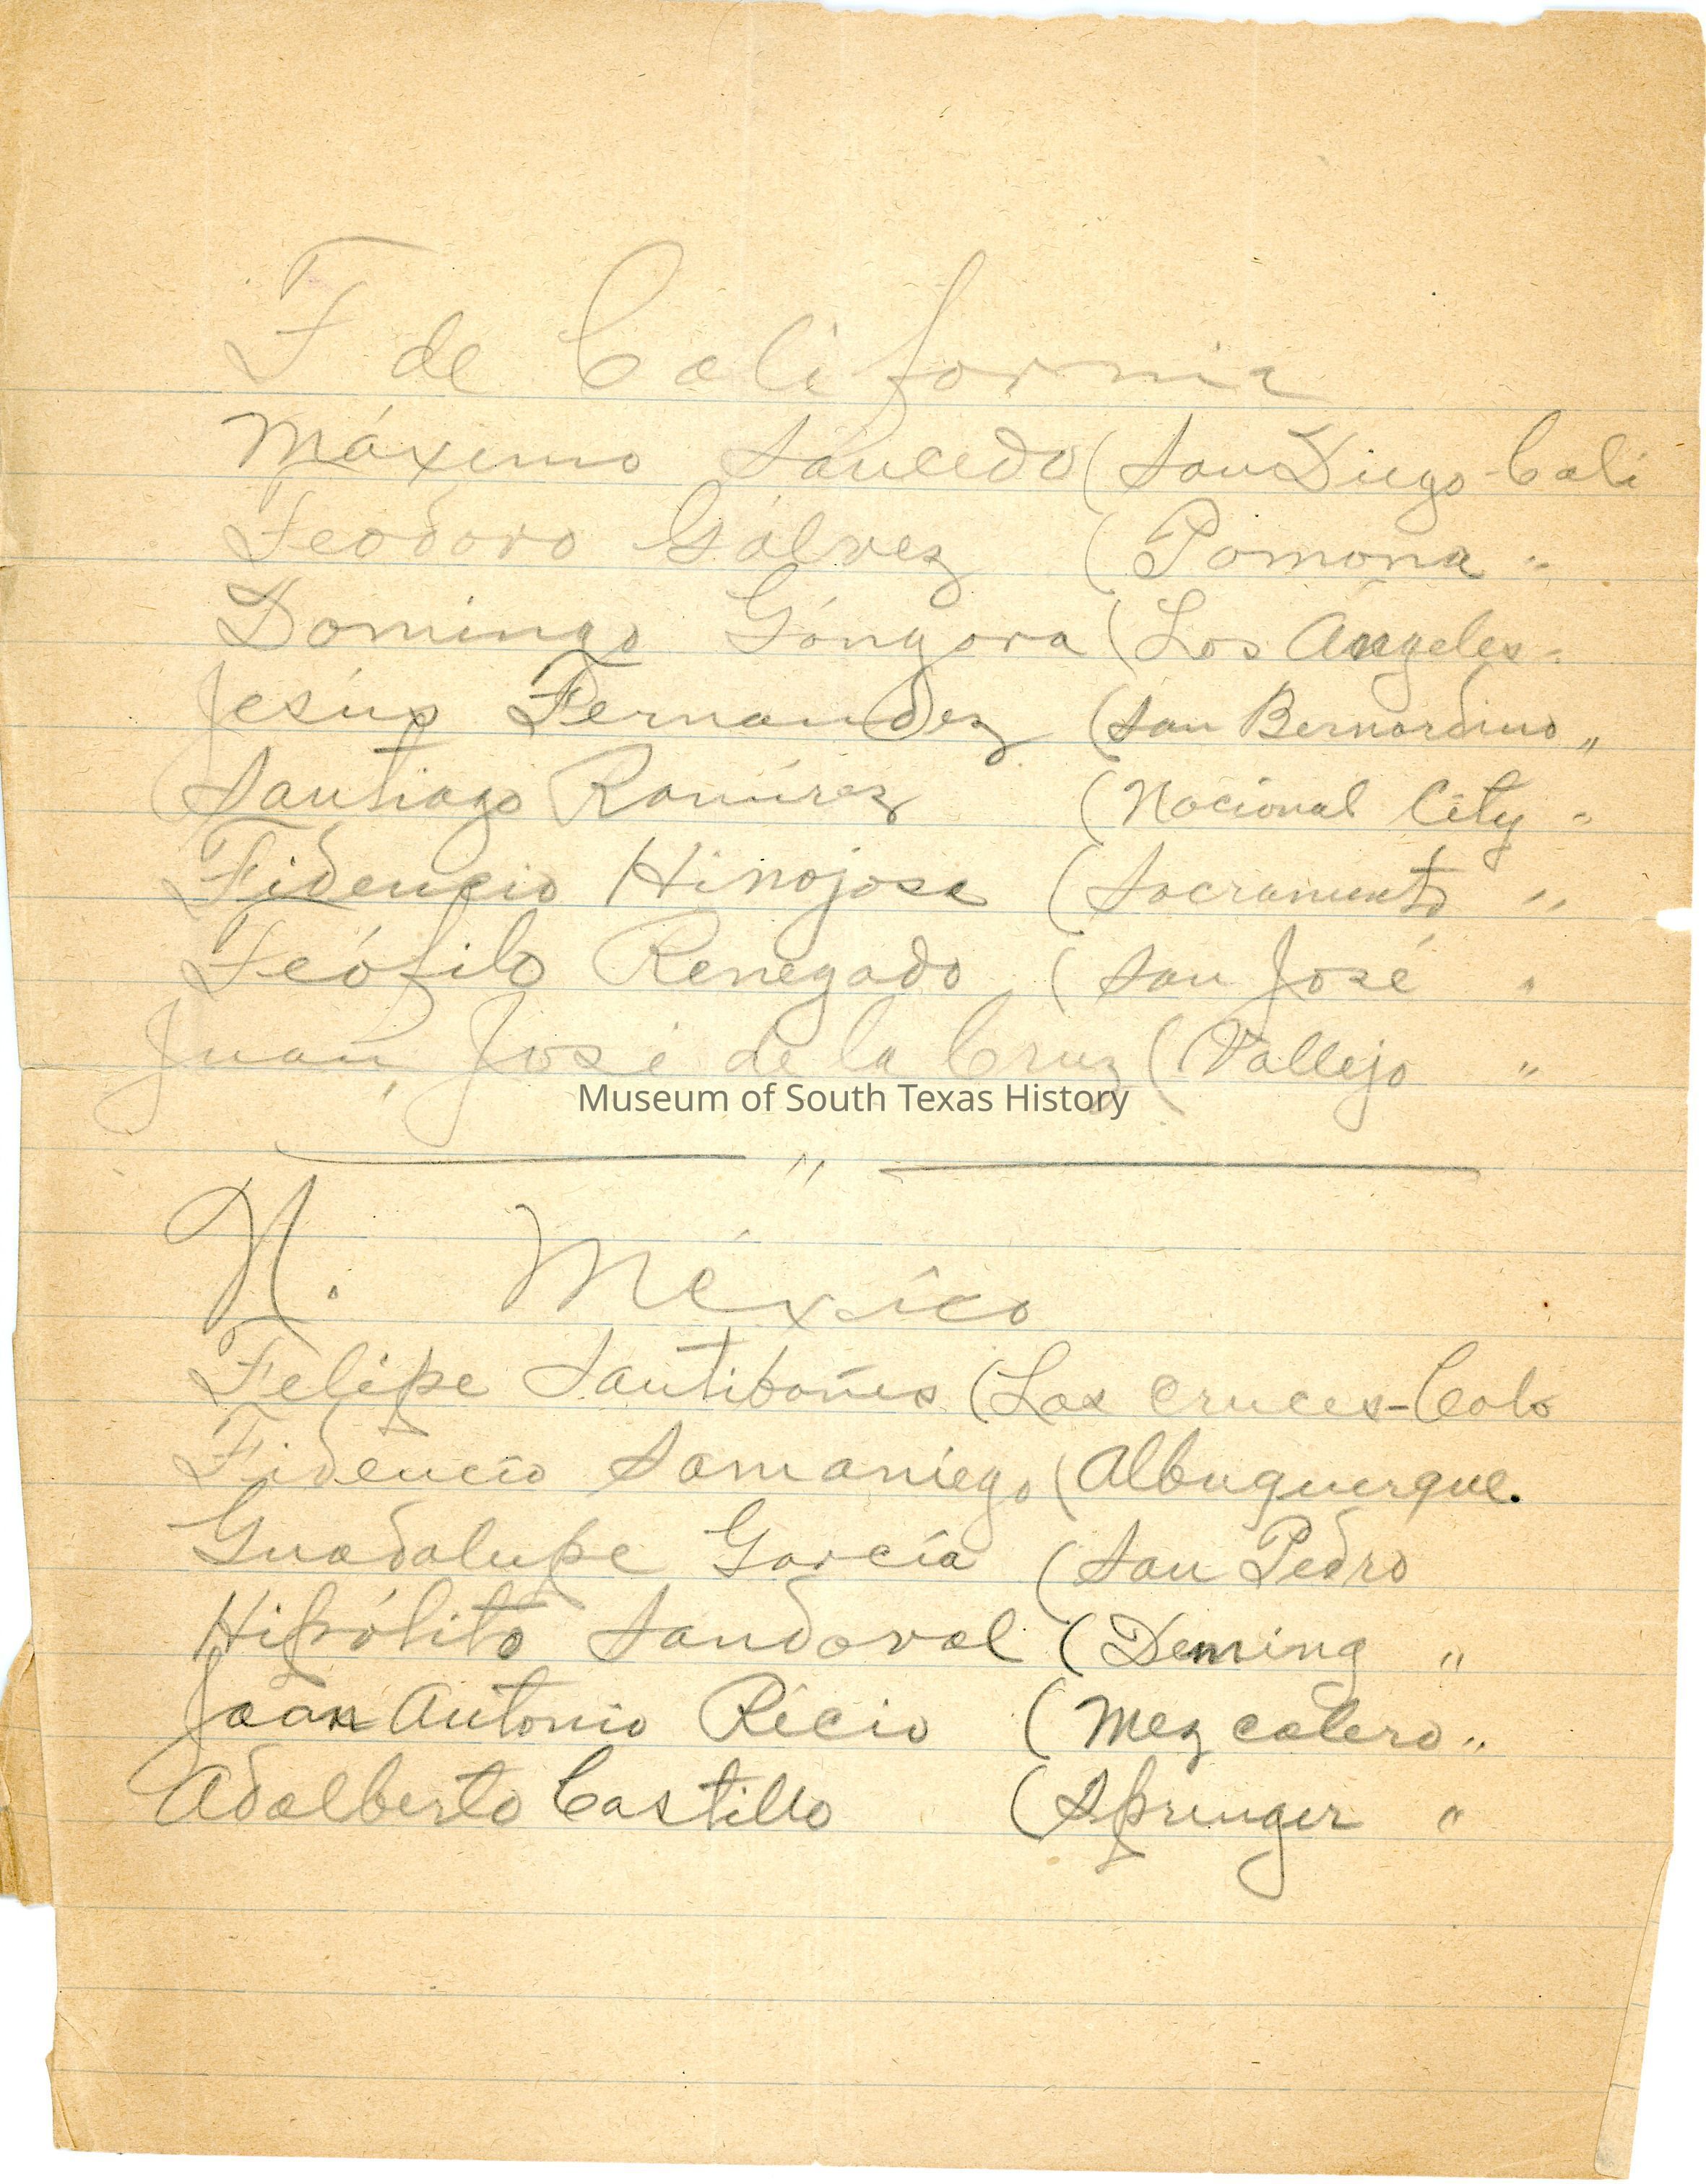 F de California
Máximo Saucedo (San Diego Cali
Teodoro Gálvez (Pomona "
Domingo Góngora (Los Ángeles "
Jesús Fernandez (San Bernardino "
Santiago Ramírez (Nacional City "
Fidencio Hinojosa (Sacramento "
Teófilo Renegado (San José "
Juan José de la Cruz (Vallejo "
Museum of South Texas History
"
N. México
Felipe Santibañes (Las Cruces-Colo
Fidencio Samaniego (Albuquerque.
Guadalupe García (San Pedro
Hipólito Sandoval (Deming "
Joan Antonio Récio (Mezcalero "
Adalberto Castillo (Springer "